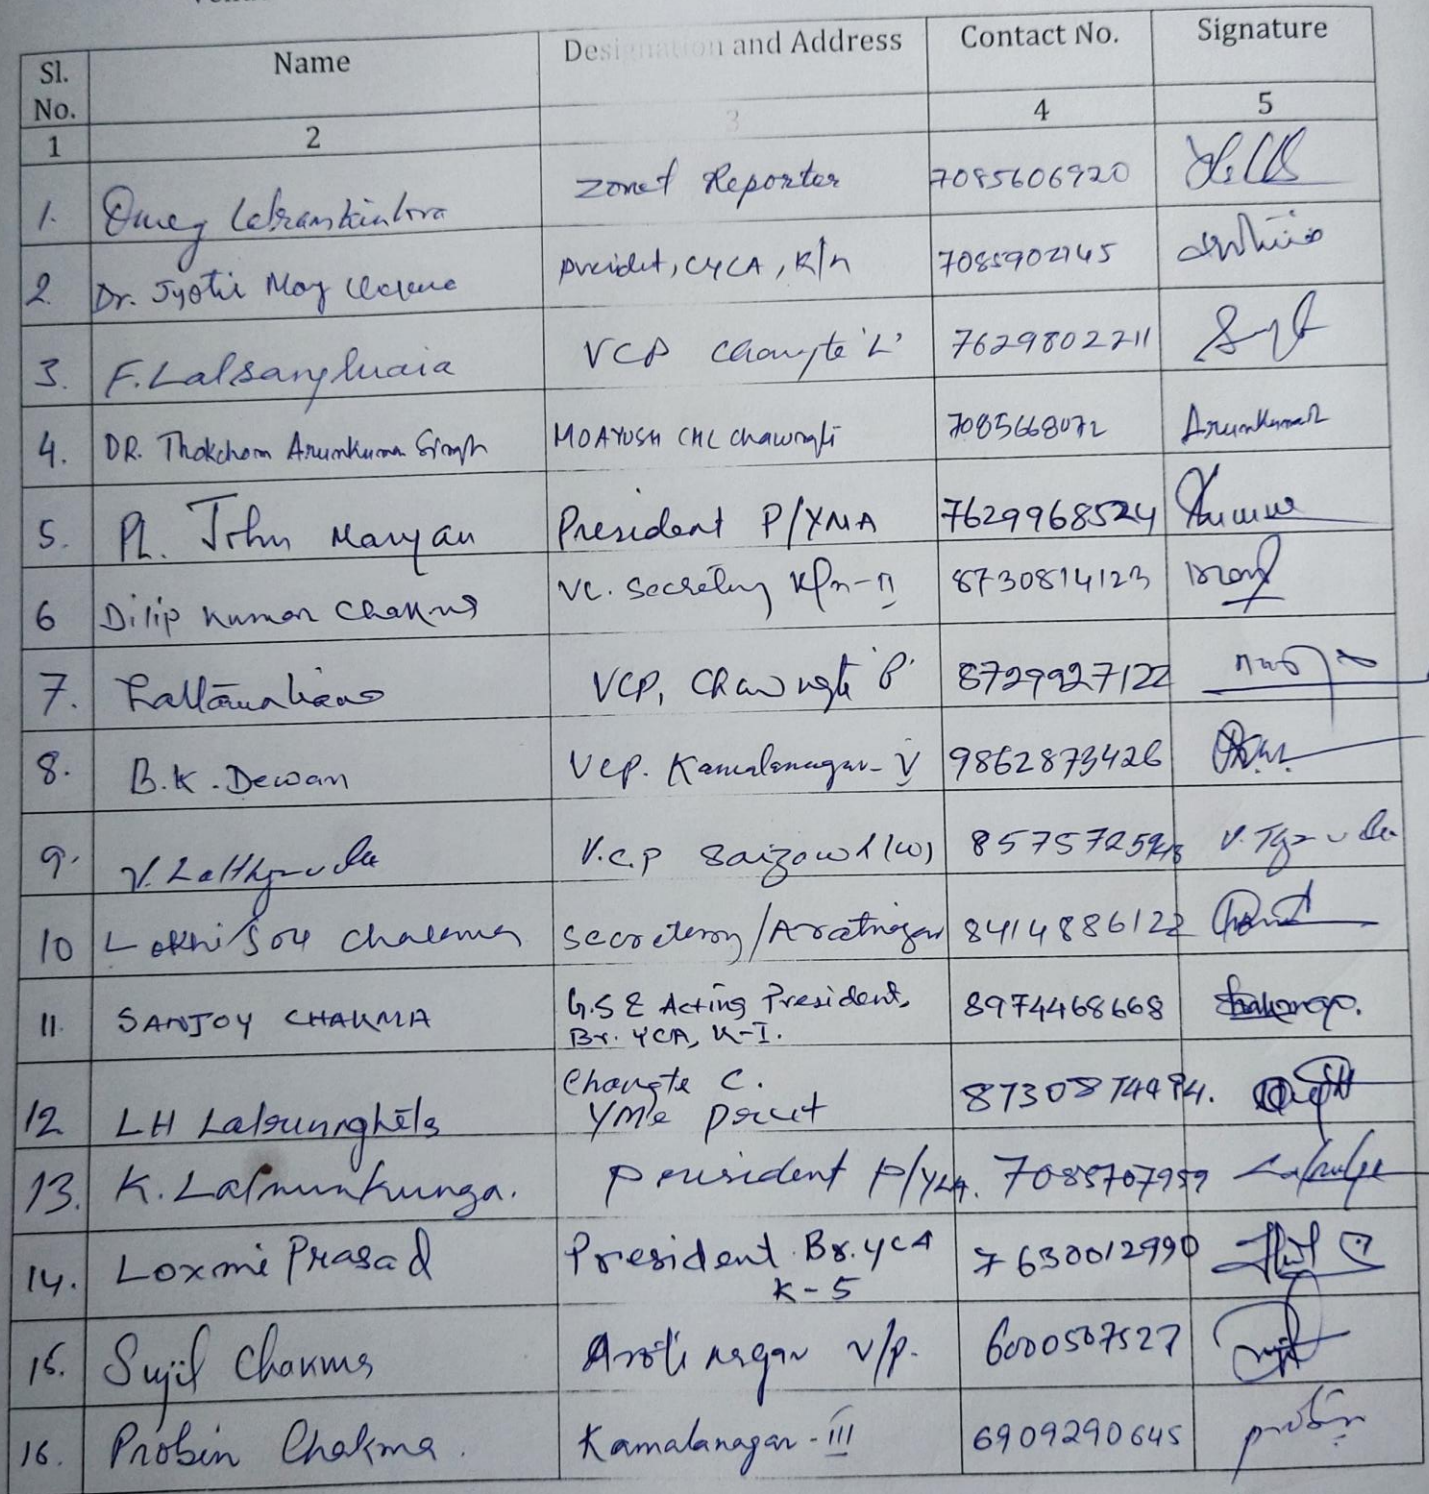 Sl. No. Name Designation and Address Contact No. Signature
1 2 3 4 5
1. Zonet Reporter 7085606920
2. Dr. Jyotir Moy CYCA, K/n 7085902145
3. F. Lalsangluaia VCP Chawngte 'L' 7629802211
4. DR. Thokchom Arunkumar Singh MOAYUSH CHC Chawngte 7085668072 Arunkumar
5. Ph. John Maryan President P/YMA 7629968524
6 Dilip Kumar Chakma VC. Secretary K/n-II 8730814123
7. VCP, Chawngte 'B' 8729927122
8. B.K. Dewan VCP. Kamalanagar-V 9862873426
9. V.C.P Saizawh (W)
10 Chakma Secretary/Aratnagar 8414886122
11. SANJOY CHAKMA G.S & Acting President, 8974468668
Br. YCA, K-I.
12 LH Chawngte C.
YMA
13. K. Lalnunkunga. President 7085707959
14. Loxmi Prasad President Br. YCA 7630012990
K-5
15. Sujil Chakma nagar v/p. 6000507527
16. Probin Chakma. Kamalanagar-III 6909290645